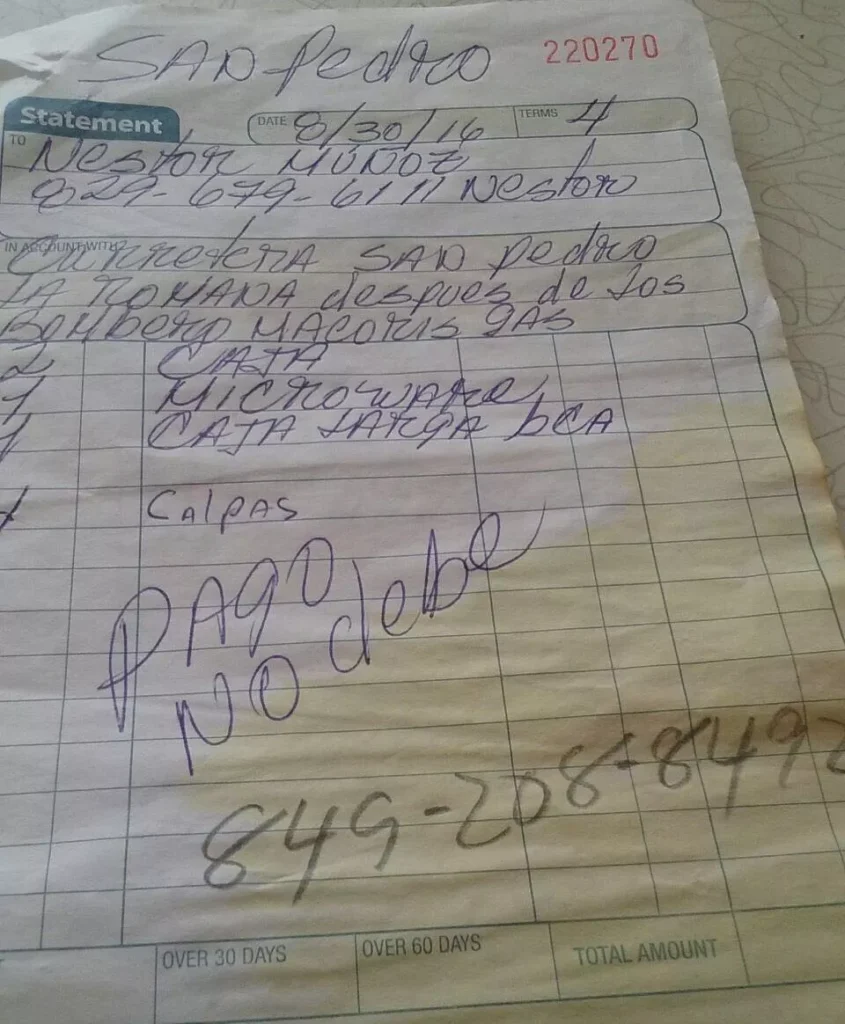 SAN Pedro 220270
Statement DATE 8/30/16 TERMS 4
TO Nestor MUÑOZ
829-679-6111 Nestor
IN ACCOUNT WITH
Carretera SAN Pedro
LA ROMANA despues de los
Bombero MACORIS gAS
2 CAJA
1 MICROWARE
1 CAJA LARGA bCA
Calpas
PAgO
NO debe
849-208-849
OVER 30 DAYS OVER 60 DAYS TOTAL AMOUNT